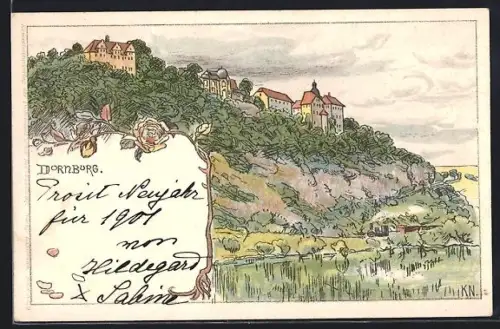 DORNBURG.
Prosit Neujahr
für 1901
von
Hildegard
& Sabine
KN.